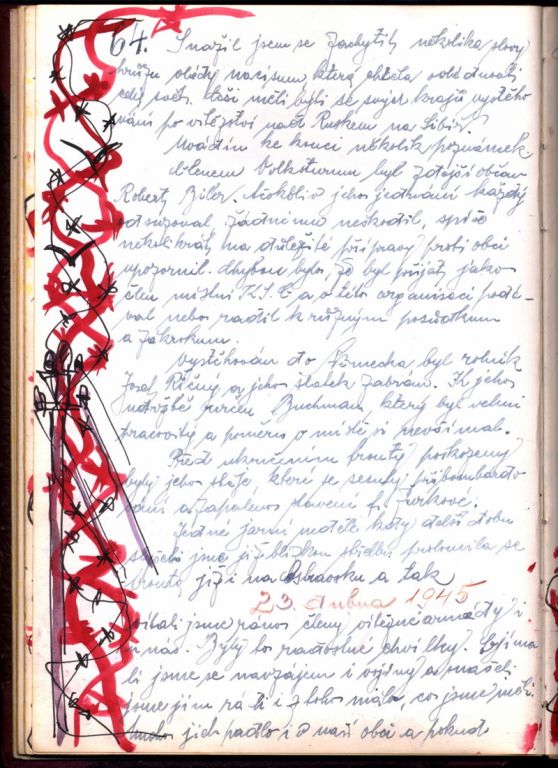 64. Snažil jsem se zachytit několika slovy
hrůzu vlády nacismu která chtěla ovládnouti
celý svět. Češi měli býti ze svých krajů vystěho-
váni po vítězství nad Ruskem na Sibiř.
Uvádím ke konci několik poznámek
členem Volkstormu byl zdejší občan
Robert Biler. Ačkoliv jeho jednání každý
odsuzoval, žádnému neškodil, spíše
několikrát na důležité přípravy proti obci
upozornil. Chybou bylo, že byl přijat jako
člen místní K.S.Č. a v této organisaci podá-
val nebo radil k různým posudkům
a zákrokům.
Vystěhován do Německa byl rolník
Josef Říčný a jeho statek zabrán. K jeho
určen Buchman, který byl velmi
pracovitý a poměrů v místě si nevšímal.
Před ukončením fronty poškozeny
byly jeho stáje, které se sesuly při bombardo-
vání a zapáleno stavení Žurkové.
Jedné jarní neděle kdy delší dobu
slyšeli jsme již blízkou střelbu prolomila se
fronta již i na Ostravsku a tak
23. dubna 1945
vítali jsme ráno členy vítězné armády i
u nás. Byly to radostné chvilky. Objíma
li jsme se navzájem i vojíny a snášeli
jsme jim rádi i z toho mála, co jsme měli.
Mnoho jich padlo i v naší obci a pokud